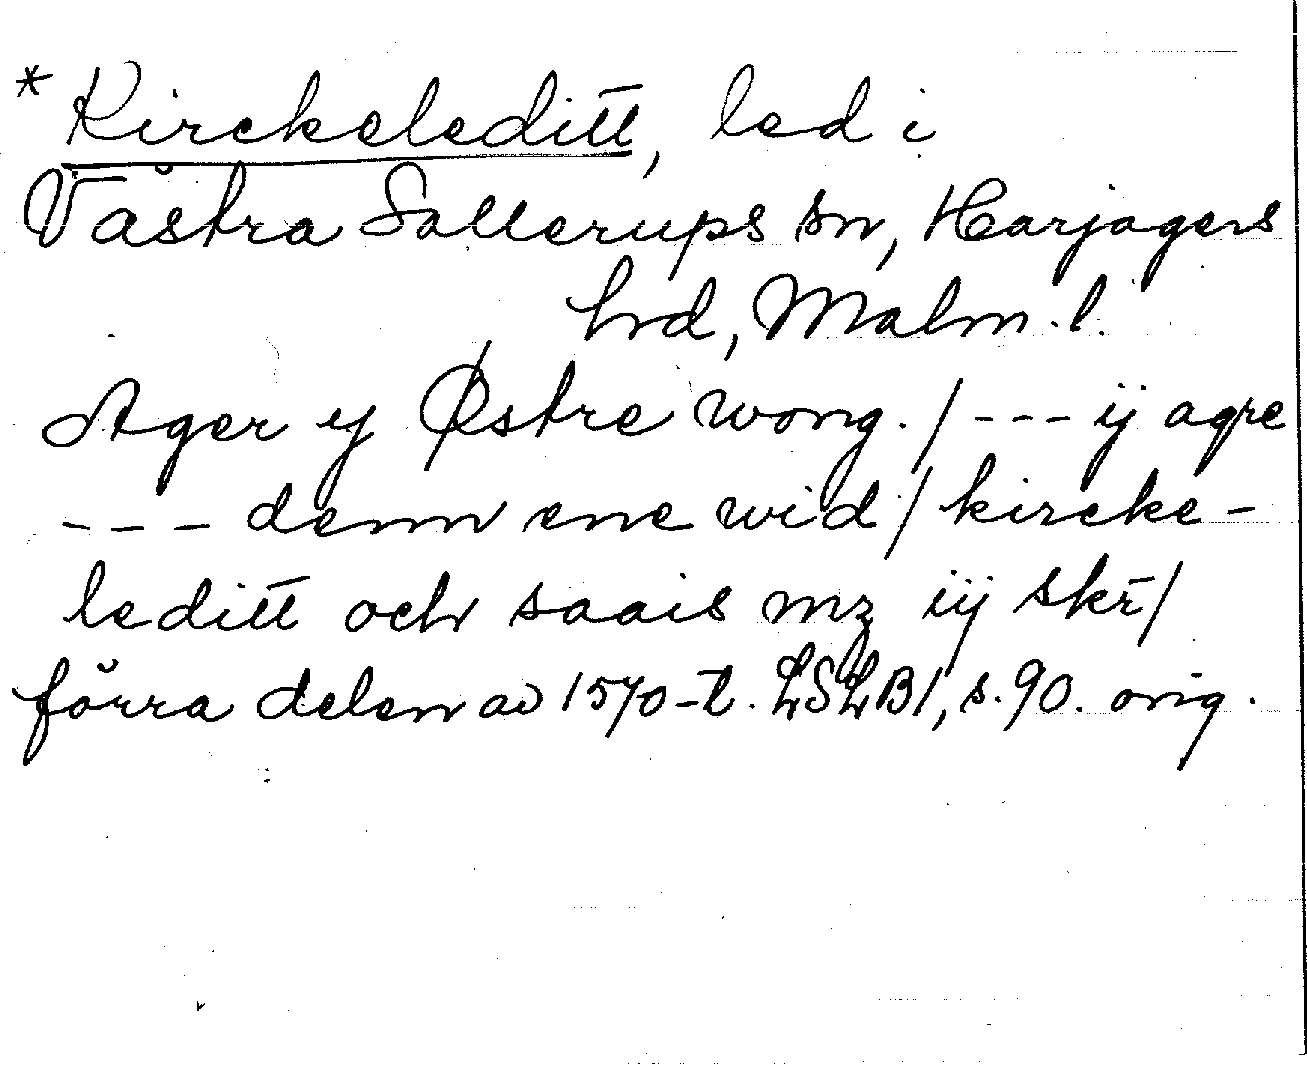 *Kirckeleditt, led i
Västra Sallerups sn, Harjagers
hrd, Malm. l.
Ager y Østre wong. / --- ij agre
--- denn ene wid / kircke-
leditt och saais mz iij skr̄ /
förra delen av 1570-t. LSLB 1, s. 90. orig.